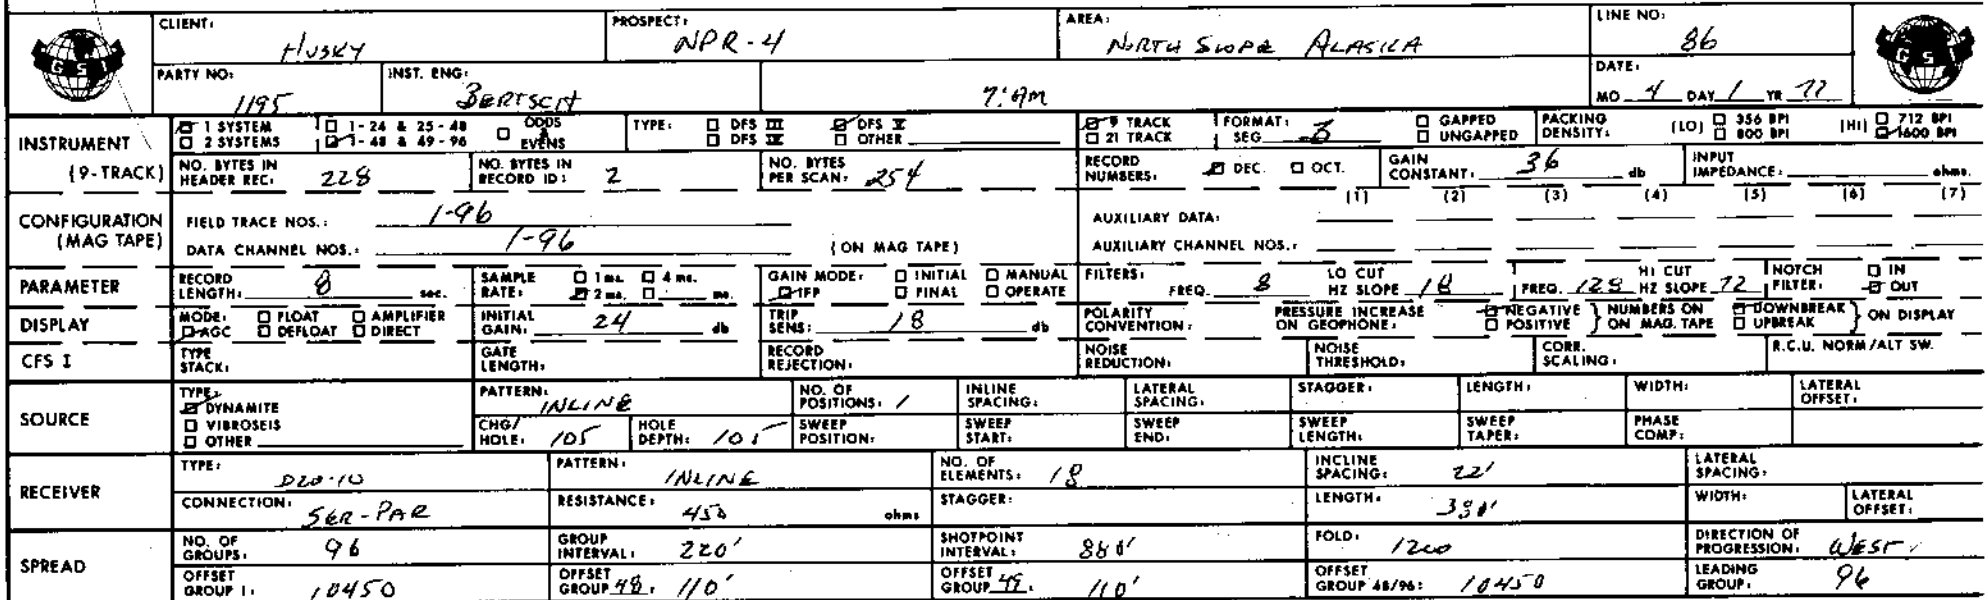 CLIENT: HUSKY PROSPECT: NPR-4 AREA: NORTH SLOPE ALASKA LINE NO: 86
GSI GSI
PARTY NO: 1195 INST. ENG: BERTSCH 7:AM DATE: MO 4 DAY 1 YR 77
INSTRUMENT (9-TRACK)
1 SYSTEM 1-24 & 25-48 ODDS & EVENS TYPE: DFS III DFS V 9 TRACK FORMAT: SEG B GAPPED PACKING DENSITY: (LO) 356 BPI (HI) 712 BPI
2 SYSTEMS 1-48 & 49-96 DFS IV OTHER 21 TRACK UNGAPPED 800 BPI 1600 BPI
NO. BYTES IN HEADER REC: 228 NO. BYTES IN RECORD ID: 2 NO. BYTES PER SCAN: 254 RECORD NUMBERS: DEC. OCT. GAIN CONSTANT: 36 db INPUT IMPEDANCE: ohms.
CONFIGURATION (MAG TAPE)
(1) (2) (3) (4) (5) (6) (7)
FIELD TRACE NOS.: 1-96 AUXILIARY DATA:
DATA CHANNEL NOS.: 1-96 (ON MAG TAPE) AUXILIARY CHANNEL NOS.:
PARAMETER RECORD LENGTH: 8 sec. SAMPLE RATE: 1 ms. 4 ms. 2 ms. ms. GAIN MODE: INITIAL MANUAL IFP FINAL OPERATE FILTERS: FREQ. 8 LO CUT HZ SLOPE 18 FREQ. 128 HI CUT HZ SLOPE 72 NOTCH FILTER: IN OUT
DISPLAY MODE: FLOAT AMPLIFIER AGC DEFLOAT DIRECT INITIAL GAIN: 24 db TRIP SENS: 18 db POLARITY CONVENTION: PRESSURE INCREASE ON GEOPHONE: NEGATIVE POSITIVE NUMBERS ON ON MAG. TAPE DOWNBREAK UPBREAK ON DISPLAY
CFS I TYPE STACK: GATE LENGTH: RECORD REJECTION: NOISE REDUCTION: NOISE THRESHOLD: CORR. SCALING: R.C.U. NORM/ALT SW.
SOURCE TYPE: DYNAMITE VIBROSEIS OTHER
PATTERN: INLINE NO. OF POSITIONS: 1 INLINE SPACING: LATERAL SPACING: STAGGER: LENGTH: WIDTH: LATERAL OFFSET:
CHG/HOLE: 105 HOLE DEPTH: 105 SWEEP POSITION: SWEEP START: SWEEP END: SWEEP LENGTH: SWEEP TAPER: PHASE COMP:
RECEIVER
TYPE: D20-10 PATTERN: INLINE NO. OF ELEMENTS: 18 INCLINE SPACING: 22' LATERAL SPACING:
CONNECTION: SER-PAR RESISTANCE: 450 ohms STAGGER: LENGTH: 380' WIDTH: LATERAL OFFSET:
SPREAD
NO. OF GROUPS: 96 GROUP INTERVAL: 220' SHOTPOINT INTERVAL: 880' FOLD: 1200 DIRECTION OF PROGRESSION: WEST
OFFSET GROUP 1: 10450 OFFSET GROUP 48: 110' OFFSET GROUP 49: 110' OFFSET GROUP 48/96: 10450 LEADING GROUP: 96